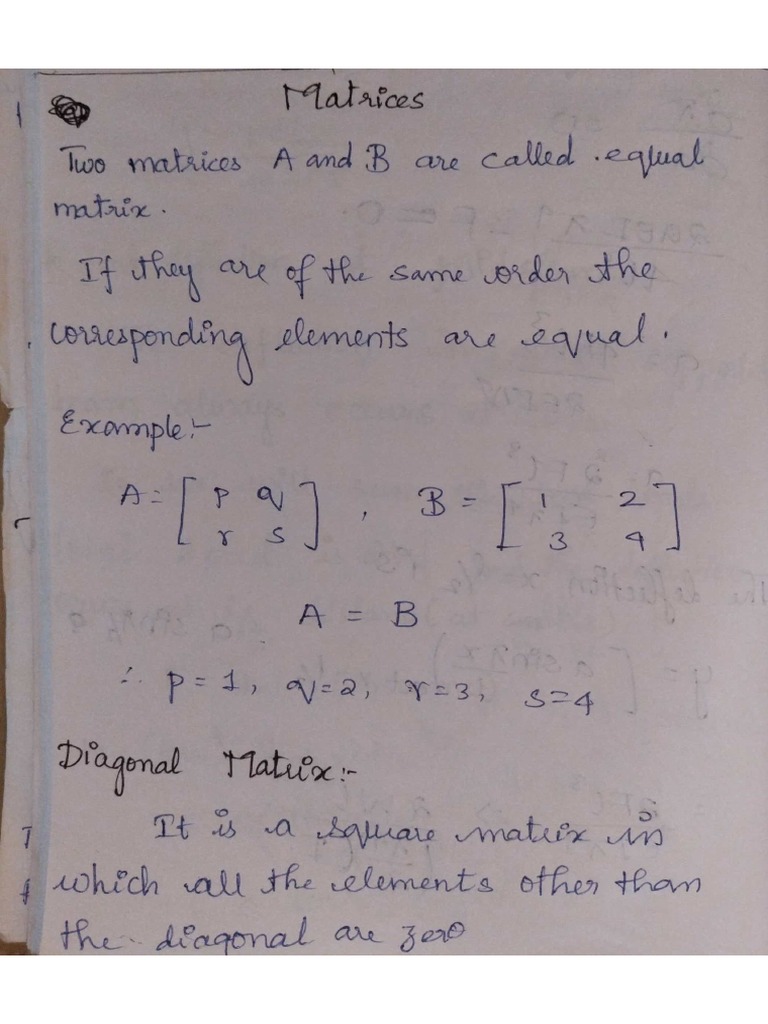 Matrices
Two matrices A and B are called . equal
matrix.
If they are of the same order the
corresponding elements are equal.
Example:-
A = [ p q
r s ] , B = [ 1 2
3 4 ]
A = B
∴ p = 1, q = 2, r = 3, s = 4
Diagonal Matrix:-
It is a square matrix in
which all the elements other than
the diagonal are zero